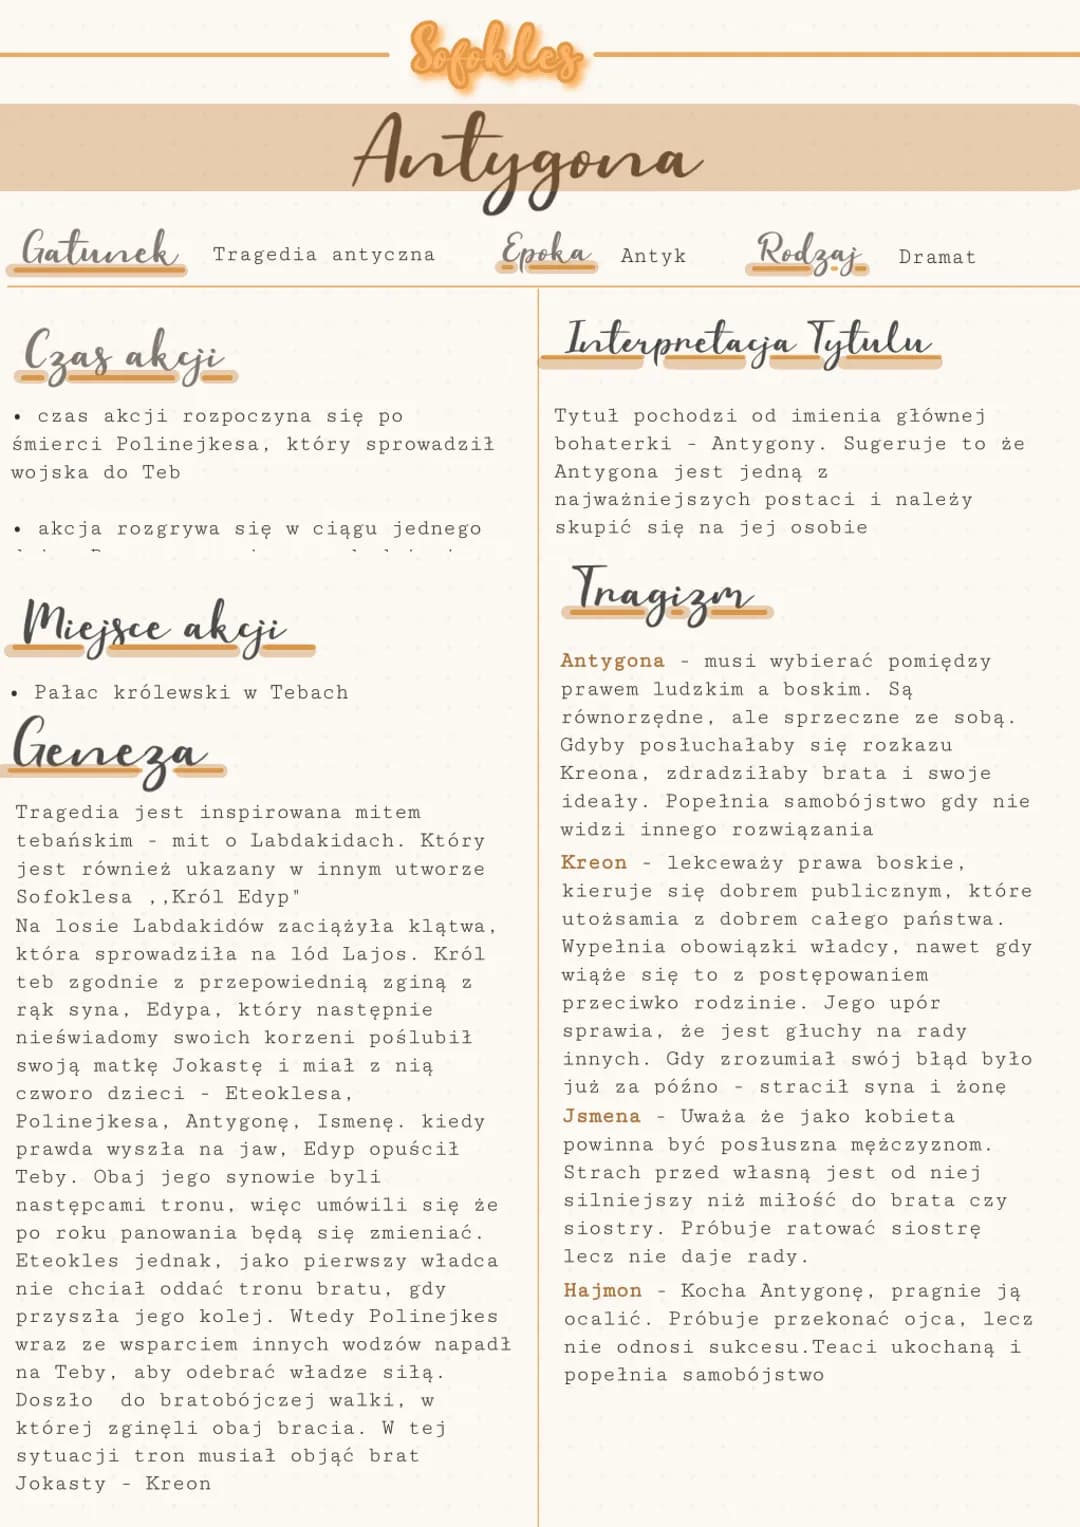 Sofokles
Antygona
Gatunek Tragedia antyczna Epoka Antyk Rodzaj Dramat
Czas akcji
• czas akcji rozpoczyna się po
śmierci Polinejkesa, który sprowadził
wojska do Teb
• akcja rozgrywa się w ciągu jednego
Miejsce akcji
• Pałac królewski w Tebach
Geneza
Tragedia jest inspirowana mitem
tebańskim - mit o Labdakidach. Który
jest również ukazany w innym utworze
Sofoklesa ,,Król Edyp"
Na losie Labdakidów zaciążyła klątwa,
która sprowadziła na lód Lajos. Król
teb zgodnie z przepowiednią zginą z
rąk syna, Edypa, który następnie
nieświadomy swoich korzeni poślubił
swoją matkę Jokastę i miał z nią
czworo dzieci - Eteoklesa,
Polinejkesa, Antygonę, Ismenę. kiedy
prawda wyszła na jaw, Edyp opuścił
Teby. Obaj jego synowie byli
następcami tronu, więc umówili się że
po roku panowania będą się zmieniać.
Eteokles jednak, jako pierwszy władca
nie chciał oddać tronu bratu, gdy
przyszła jego kolej. Wtedy Polinejkes
wraz ze wsparciem innych wodzów napadł
na Teby, aby odebrać władze siłą.
Doszło do bratobójczej walki, w
której zginęli obaj bracia. W tej
sytuacji tron musiał objąć brat
Jokasty - Kreon
Interpretacja Tytulu
Tytuł pochodzi od imienia głównej
bohaterki - Antygony. Sugeruje to że
Antygona jest jedną z
najważniejszych postaci i należy
skupić się na jej osobie
Tragizm
Antygona - musi wybierać pomiędzy
prawem ludzkim a boskim. Są
równorzędne, ale sprzeczne ze sobą.
Gdyby posłuchałaby się rozkazu
Kreona, zdradziłaby brata i swoje
ideały. Popełnia samobójstwo gdy nie
widzi innego rozwiązania
Kreon - lekceważy prawa boskie,
kieruje się dobrem publicznym, które
utożsamia z dobrem całego państwa.
Wypełnia obowiązki władcy, nawet gdy
wiąże się to z postępowaniem
przeciwko rodzinie. Jego upór
sprawia, że jest głuchy na rady
innych. Gdy zrozumiał swój błąd było
już za późno - stracił syna i żonę
Jsmena - Uważa że jako kobieta
powinna być posłuszna mężczyznom.
Strach przed własną jest od niej
silniejszy niż miłość do brata czy
siostry. Próbuje ratować siostrę
lecz nie daje rady.
Hajmon - Kocha Antygonę, pragnie ją
ocalić. Próbuje przekonać ojca, lecz
nie odnosi sukcesu.Teaci ukochaną i
popełnia samobójstwo